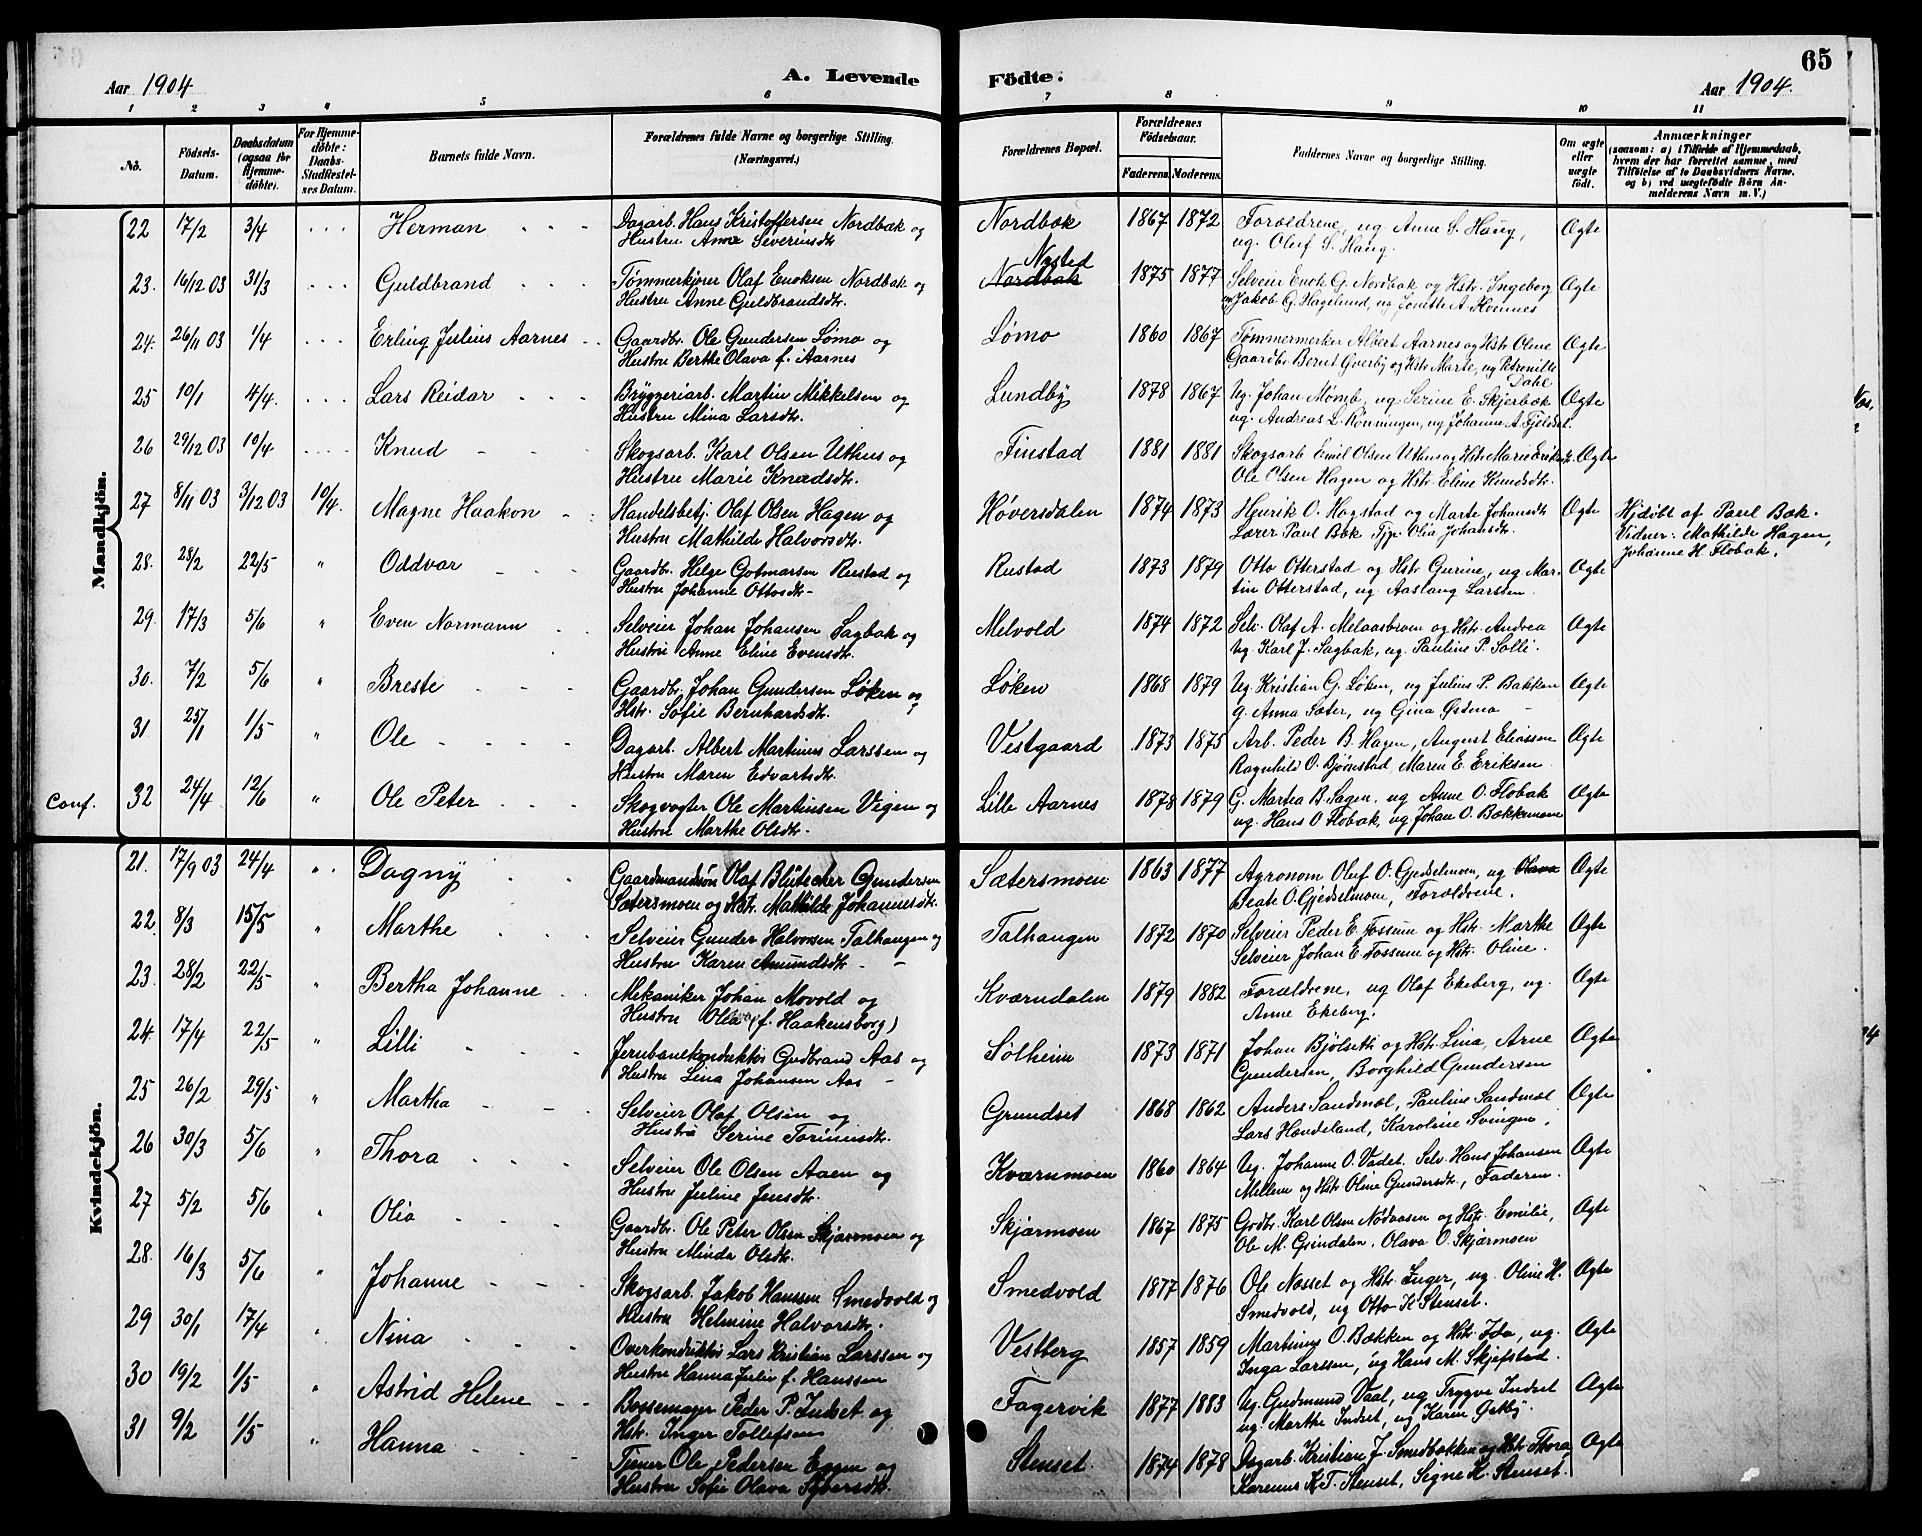 65
Aar 1904
A. Levende
Fødte.
Aar 1904.
1 2 3 4 5 6 7 8 9 10 11
No.
Födsels-
Datum.
Daabsdatum
(ogsaa for
Hjemme-
døbte).
For Hjemme-
døbte:
Daabs-
Stadfæstel-
ses Datum.
Barnets fulde Navn.
Forældrenes fulde Navne og borgerlige Stilling.
(Næringsvei.)
Forældrenes Bopæl.
Forældrenes
Födselsaar.
Faderens. Moderens.
Faddernes Navne og borgerlige Stilling.
Om ægte
eller
uægte
født.
Anmærkninger
(saasom: a) i Tilfælde af Hjemmedaab,
hvem der har forrettet samme, med
Tilföielse af to Daabsvidners Navne,
og b) ved uægtefödte Börn An-
melderens Navn m. V.)
Mandkjön.
22 17/2 3/4 Herman Dagarb. Hans Kristoffersen Nordbæk og Nordbæk 1867 1872 Forældrene, ug. Anne S. Haug, Ægte
Hustru Anne Severinsdt. ug. Oluf S. Haug.
Nysted
23. 16/12 03 31/3 Guldbrand Tømmerkjører Olaf Enoksen Nordbak og Nordbak 1875 1877 Selveier Enok G. Nordbak og Hstr. Ingeborg Ægte
Hustru Anne Guldbrandsdt. og Jakob G. Hagelund, ug Jonette A. Hvamnes
24. 26/11 03 1/4 Erling Julius Aarnes Gaardbr. Ole Gundersen Lømo og Lømo 1860 1867 Tømmermerker Albert Aarnes og Hstr. Oline Ægte
Hustru Berthe Olava f. Aarnes Gaardbr. Bernt Gverby og Hstr. Marte, ug Petronille
Dahl
25 10/1 4/4. Lars Reidar Bryggeriarb. Martin Mikkelsen og Lundby 1878 1867 Ug. Johan Mømb, ug Serine E. Skjerbæk Ægte
Hustru Mina Larsdt. ug. Andreas L. Rønningen, ug Johanne A. Fjeldset.
26 29/12 03 10/4 Knud Skogsarb. Karl Olsen Uthus og Finstad 1881 1881 Skogsarb Emil Olsen Uthus og Hstr. Marie Eriksdt. Ægte
Hustru Marie Knudsdt. Ole Olsen Hagen og Hstr. Eline Knudsdt.
27 8/11 03 3/12 03 10/4. Magne Haakon Handelsbetj. Olaf Olsen Hagen og Høversdalen 1874 1873 Henrik O. Hagstad og Marte Johansdt Ægte Hjdøbt af Paul Bæk.
Hustru Mathilde Halvorsdt. Lærer Paul Bæk Tjp. Olia Johansdt. Vidner: Mathilde Hagen,
Johanne H. Flobak.
28. 28/2 22/5 " Oddvar Gaardbr. Helge Gotmarsen Rustad og Rustad 1873 1879 Otto Otterstad og Hstr Gurine, ug Mar- Ægte
Hustru Johanne Ottosdt. tin Otterstad, ug. Aaslaug Larsten.
29. 17/3 5/6 " Even Normann Selveier Johan Johansen Sagbak og Melvold 1874 1872 Selv. Olaf A. Melaasbroen og Hstr. Andrea Ægte
Hustru Anne Eline Evensdt. Ug. Karl J. Sagbak, ug. Pauline P. Solli.
30. 7/2 5/6 " Breste Gaardbr. Johan Gundersen Løken og Løken 1868 1879 Ug. Kristian G. Løken, ug Julius P. Bakken Ægte
Hstr. Sofie Bernhardsdt. g. Anna Sæter, ug Gina Øsdmo
31 25/1 1/5 " Ole Dagarb. Albert Martinus Larssen og Vestgaard 1873 1875 Arb. Peder B. Hagen, August Eliassen Ægte
Hustru Maren Edvartsdt. Ragnhild O. Bjørnstad, Maren E. Eriksen
Conf. 32 24/4 12/6 " Ole Peter Skogvogter Ole Martinsen Vigen og Lille Aarnes 1878 1879 G. Martea B. Sagen, ug Anne O. Flobak Ægte
Hustru Marthe Olsdt. ug. Hans O Flobak, ug Johan O. Bækkemoen
Kvindekjön.
21. 17/9 03 24/4 " Dagny Gaardmandssøn Olaf Blütscher Gundersen Sætersmoen 1863 1877 Agronom Oluf O. Gjedselmoen, ug Olava Ægte
Sætersmoen og Hstr. Mathilde Johannesdt. Beate O. Gjedselmoen, Forældrene.
22. 8/3 15/5 " Marthe Selveier Gunder Halvorsen Talhaugen og Talhaugen 1872 1870 Selveier Peder E. Fossum og Hstr. Marthe Ægte
Hustru Karen Amundsdt. Selveier Johan E. Fossum og Hstr. Oline.
23. 28/2 22/5 " Bertha Johanne Mekaniker Johan Movold og Kværndalen 1879 1882 Forældrene, ug Olaf Ekeberg, ug. Ægte
Hustru Olia (f. Haakensborg) Anne Ekeberg.
24. 17/4 22/5 " Lilli Jernbanekonduktør Gudbrand Aas og Solheim 1873 1871 Johan Bjølseth og Hstr. Lina, Arne Ægte
Hustru Lina Johansen Aas Gundersen, Borghild Gundersen
25 26/2 29/5 " Martha Selveier Olaf Olsen og Grundset 1868 1862 Anders Sandmæl, Pauline Sandmæl Ægte
Hustru Serine Torinusdt. Lars Hændeland, Karoline Svingen.
26 30/3 5/6 " Thora Selveier Ole Olsen Aaen og Kværnmoen 1860 1864 Ug. Johanne O. Vadet. Selv. Hans Johansen Ægte
Hustru Juline Jensdt. Millem og Hstr. Oline Gundersdt., Faderen.
27 5/2 5/6 " Olia Gaardbr. Ole Peter Olsen Skjærmoen og Skjærmoen 1867 1875 Grdbr. Karl Olsen Nødaasen og Hstr. Emilie, Ægte
Hustru Minda Olsdt. Ole M. Grindalen, Olava O. Skjærmoen
28. 16/3 5/6 " Johanne Skogsarb. Jakob Hanssen Smedvold og Smedvold 1877 1876 Ole Næsset og Hstr. Inger, ug. Oline H. Ægte
Hustru Helmine Halvorsdt. Smedvold, ug Otto K Stenset.
29 30/1 17/4 " Nina Overkonduktør Lars Kristian Larssen og Vestberg 1857 1859 Martinus O. Bækken og Hstr. Ida, ug. Ægte
Hustru Hanna Julie f. Hanssen Inga Larssen, ug Hans M. Skjefstad.
30 19/2 1/5 " Astrid Helene Bossemager Peder P. Indset og Fagervik 1877 1883 Ug. Gudmund Vaal, ug Trygve Indset Ægte
Hstr. Inger Tollefsen ug. Marthe Indset, ug Karen Østby.
31 9/2 1/5 " Hanna Timer Ole Pedersen Eggen og Stenset. 1874 1878 Dagarb. Kristian J. Smedbakken og Hstr. Thora Ægte
Hustru Sofie Olava Syversdt. Karenus K. T. Stenset, Signe K. Stenset.